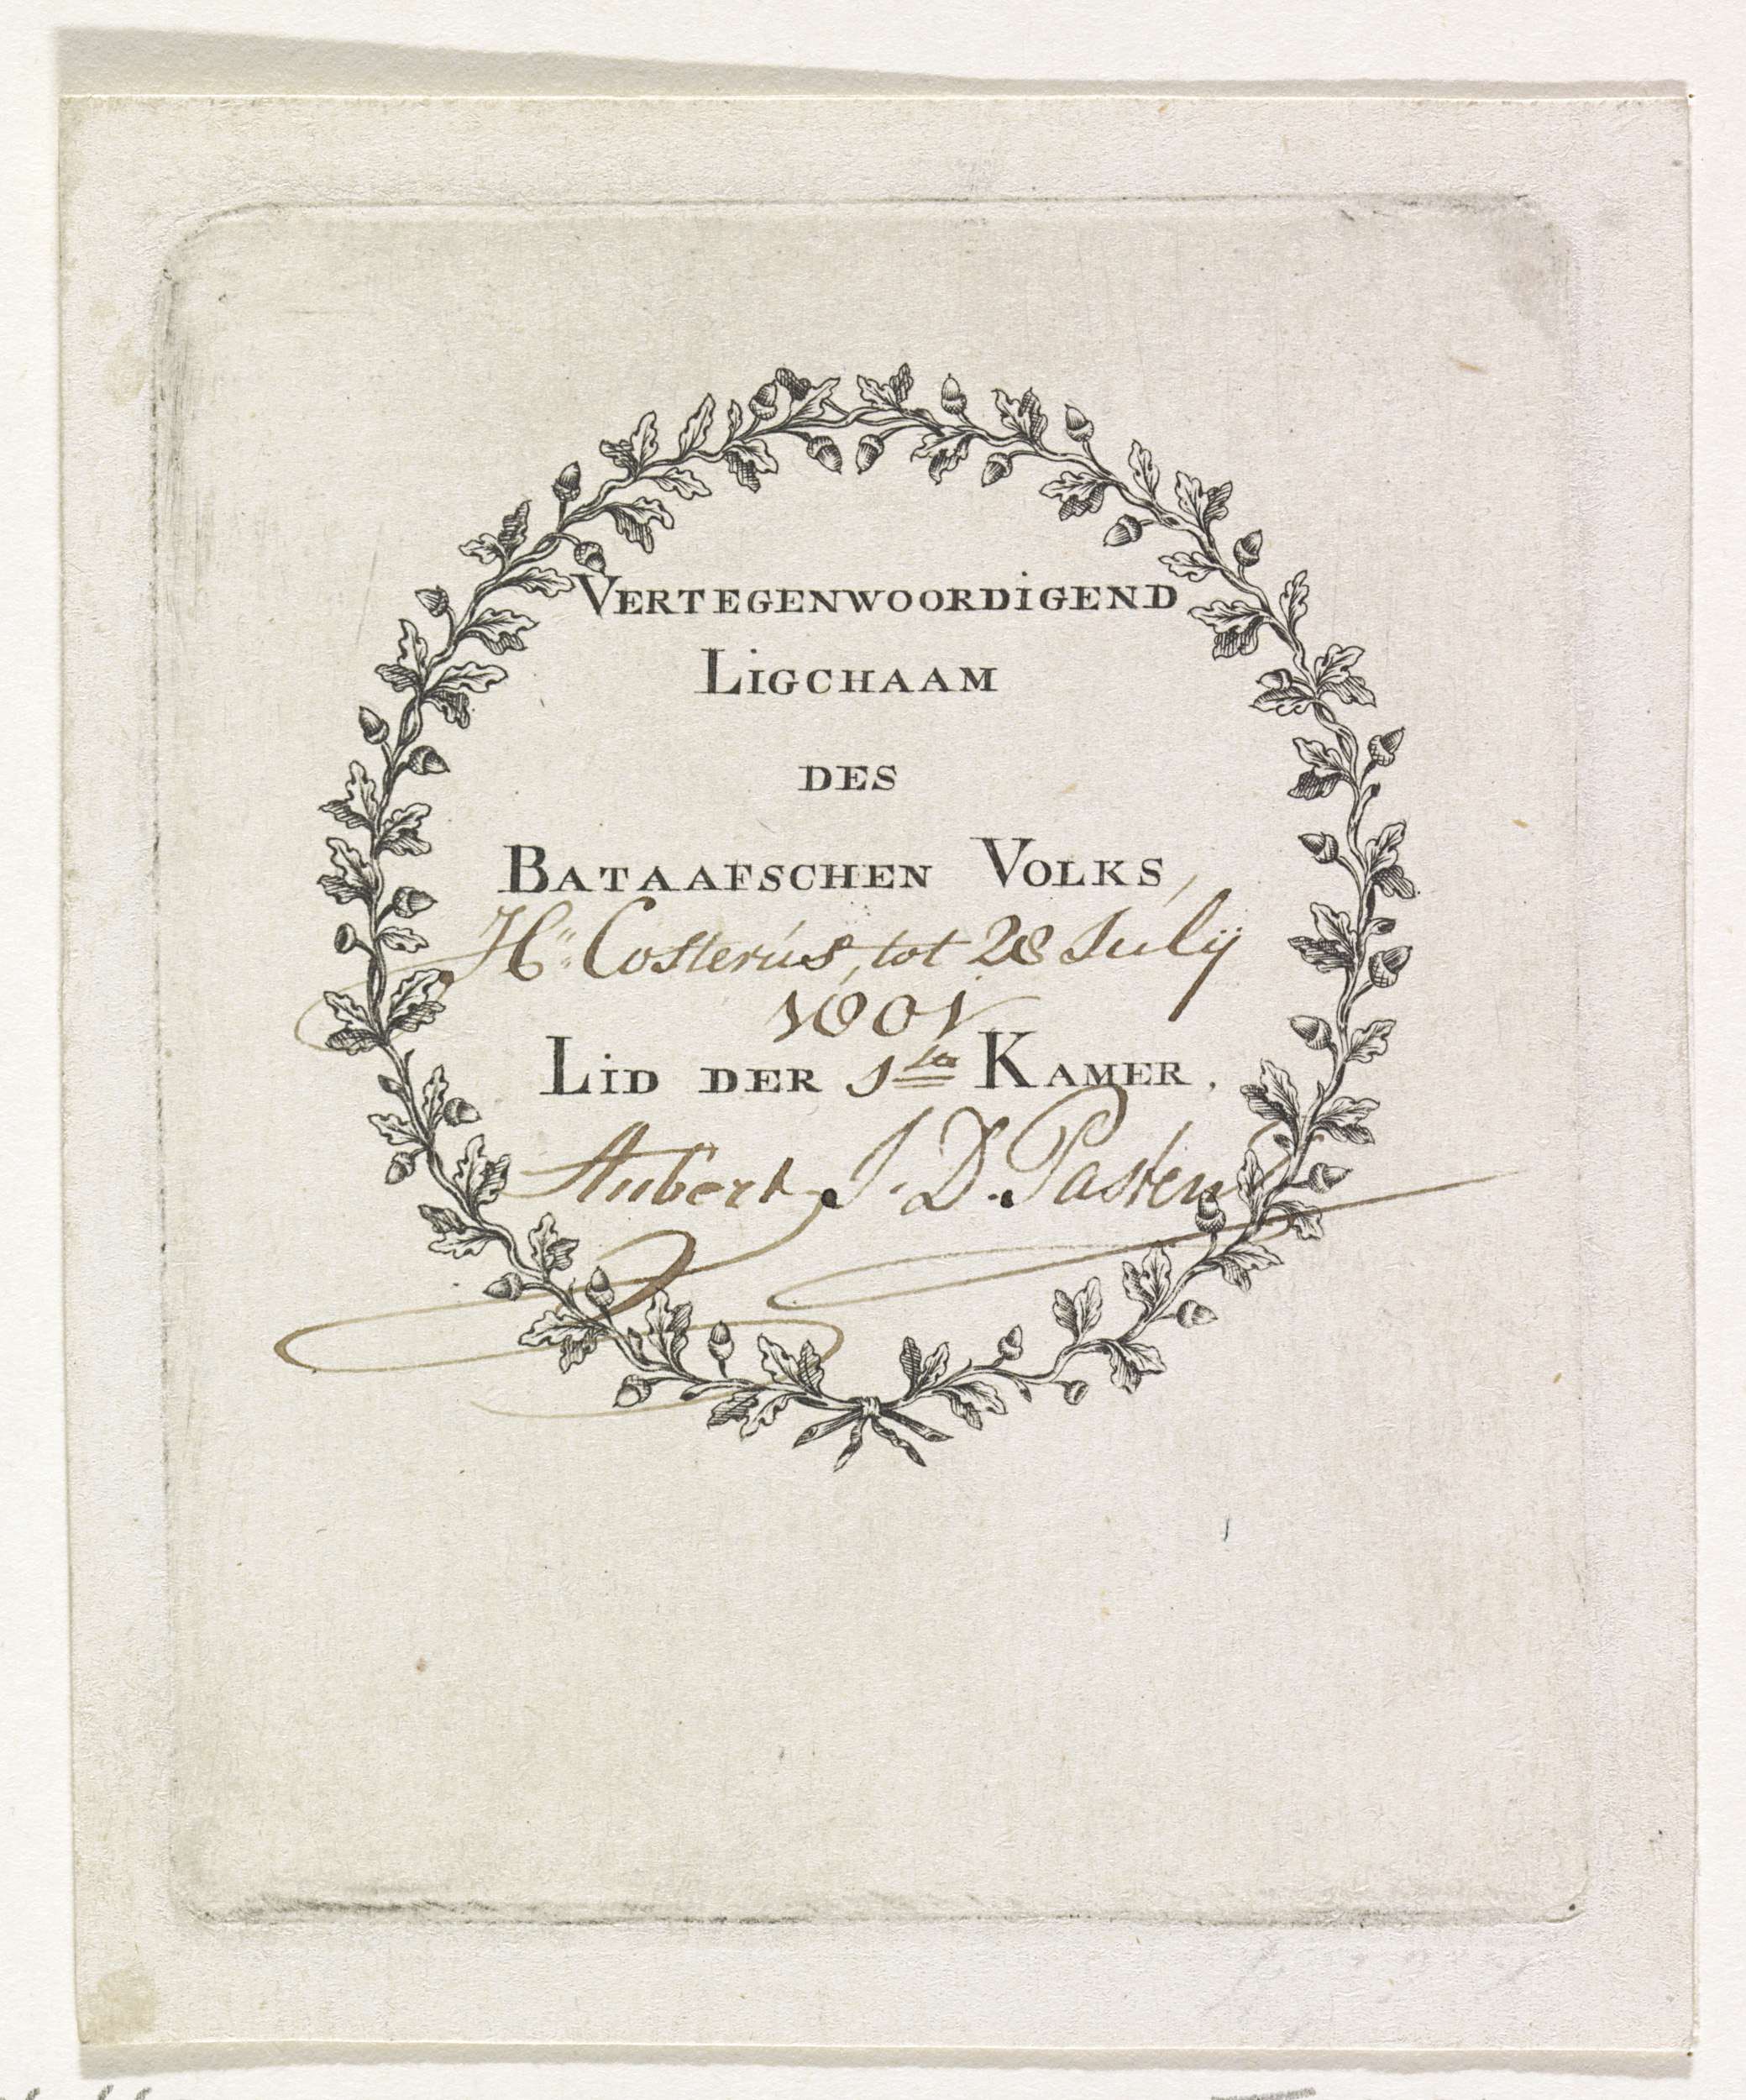 VERTEGENWOORDIGEND
LIGCHAAM
DES
BATAAFSCHEN VOLKS,
H: Costerus, tot 28 Julij
1801
LID DER 1ste KAMER.
Aubert J. D. Pasteur